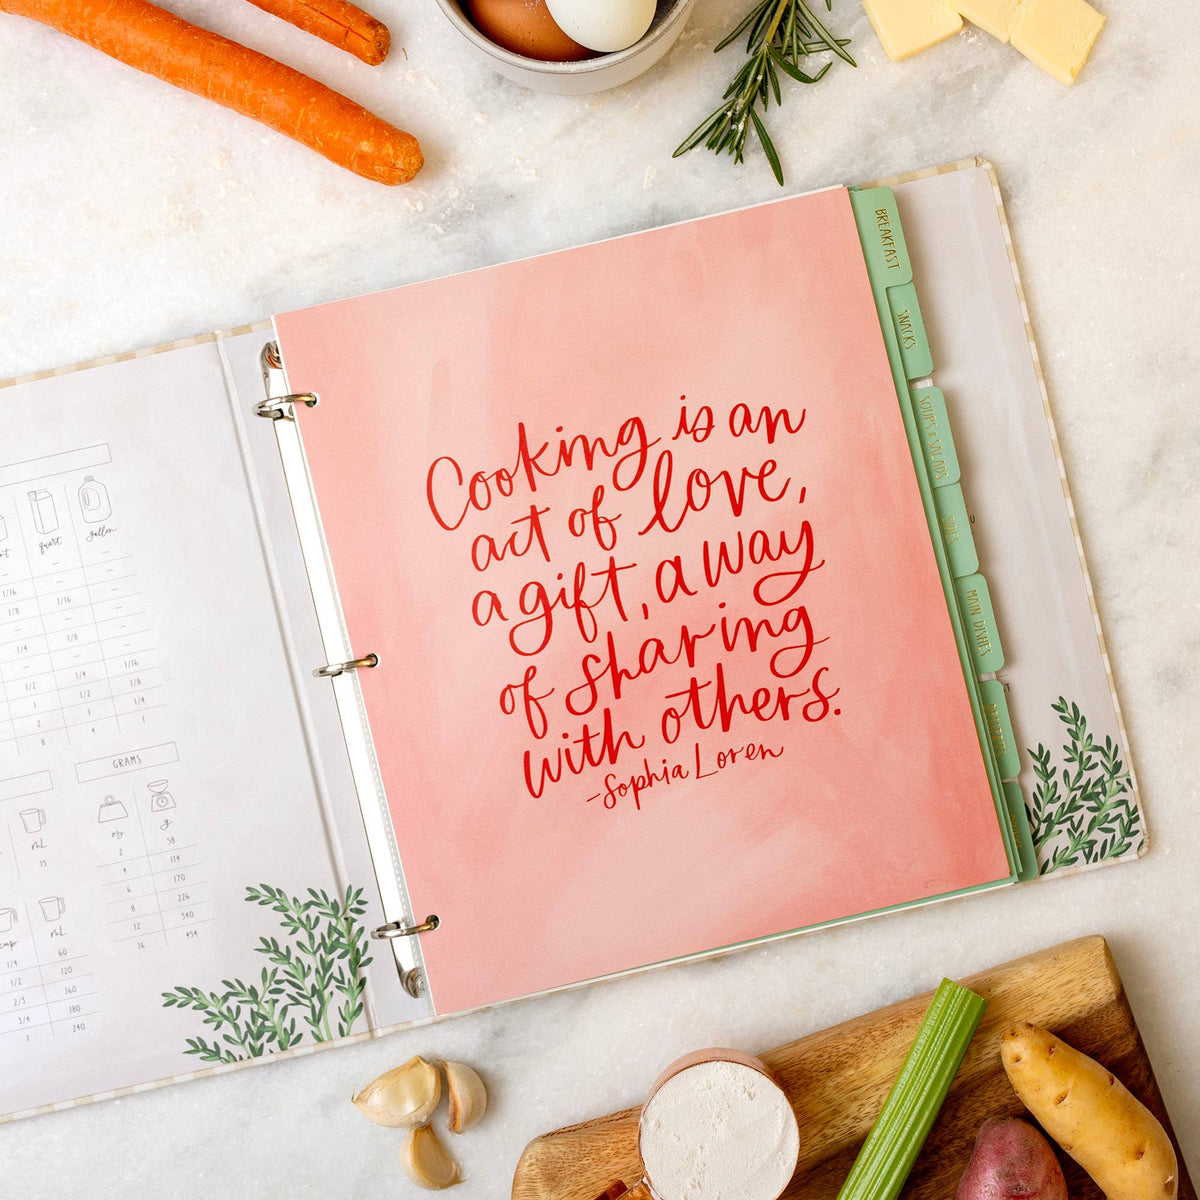 Cooking is an
act of love,
a gift, a way
of sharing
with others.
-Sophia Loren
BREAKFAST
SNACKS
SOUPS & SALADS
SIDES
MAIN DISHES
quart
gallon
- -
1/16 -
- -
1/8 -
- -
1/4 1/8 -
- -
1/2 1/4 1/16
1 1/2 1/8
2 1 1/4
8 4 1
GRAMS
oz g
2 58
4 114
6 170
8 226
12 340
16 454
mL
15
cup mL
1/4 60
1/2 120
2/3 160
3/4 180
1 240